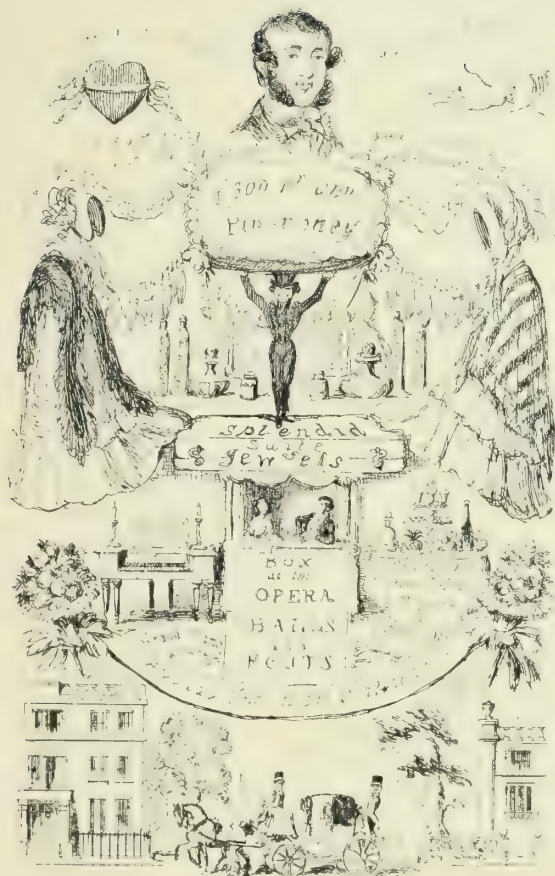 300 Pr ann
Pin money
Splendid
Suite
Jewels
BOX
at the
OPERA
BALLS
ROUTS